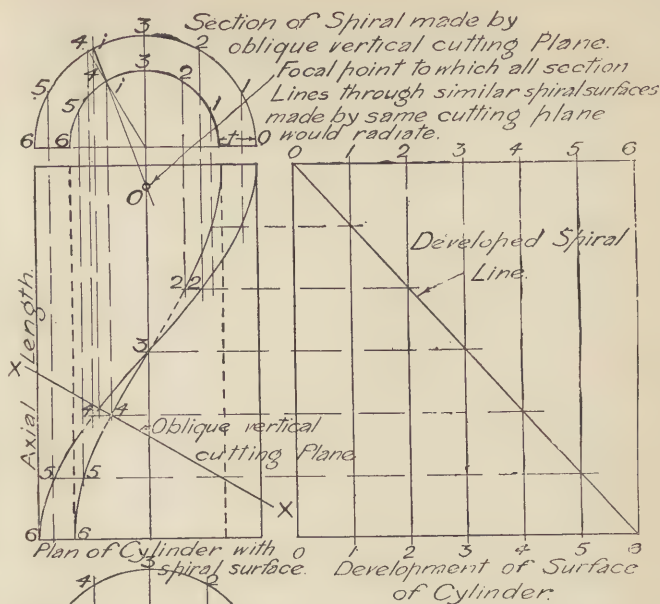 Section of Spiral made by
oblique vertical cutting Plane.
Focal point to which all section
Lines through similar spiral surfaces
made by same cutting plane
would radiate.
3
4 i 2
3
4 i 2
5 1
5 1
6 6 t 0
0 1 2 3 4 5 6
O
Developed Spiral
Line.
2 2
3
X
Axial Length.
4 4
Oblique vertical
cutting Plane
5 5
X
6 6
0 1 2 3 4 5 6
Plan of Cylinder with
spiral surface.
Development of Surface
of Cylinder.
3
4 2